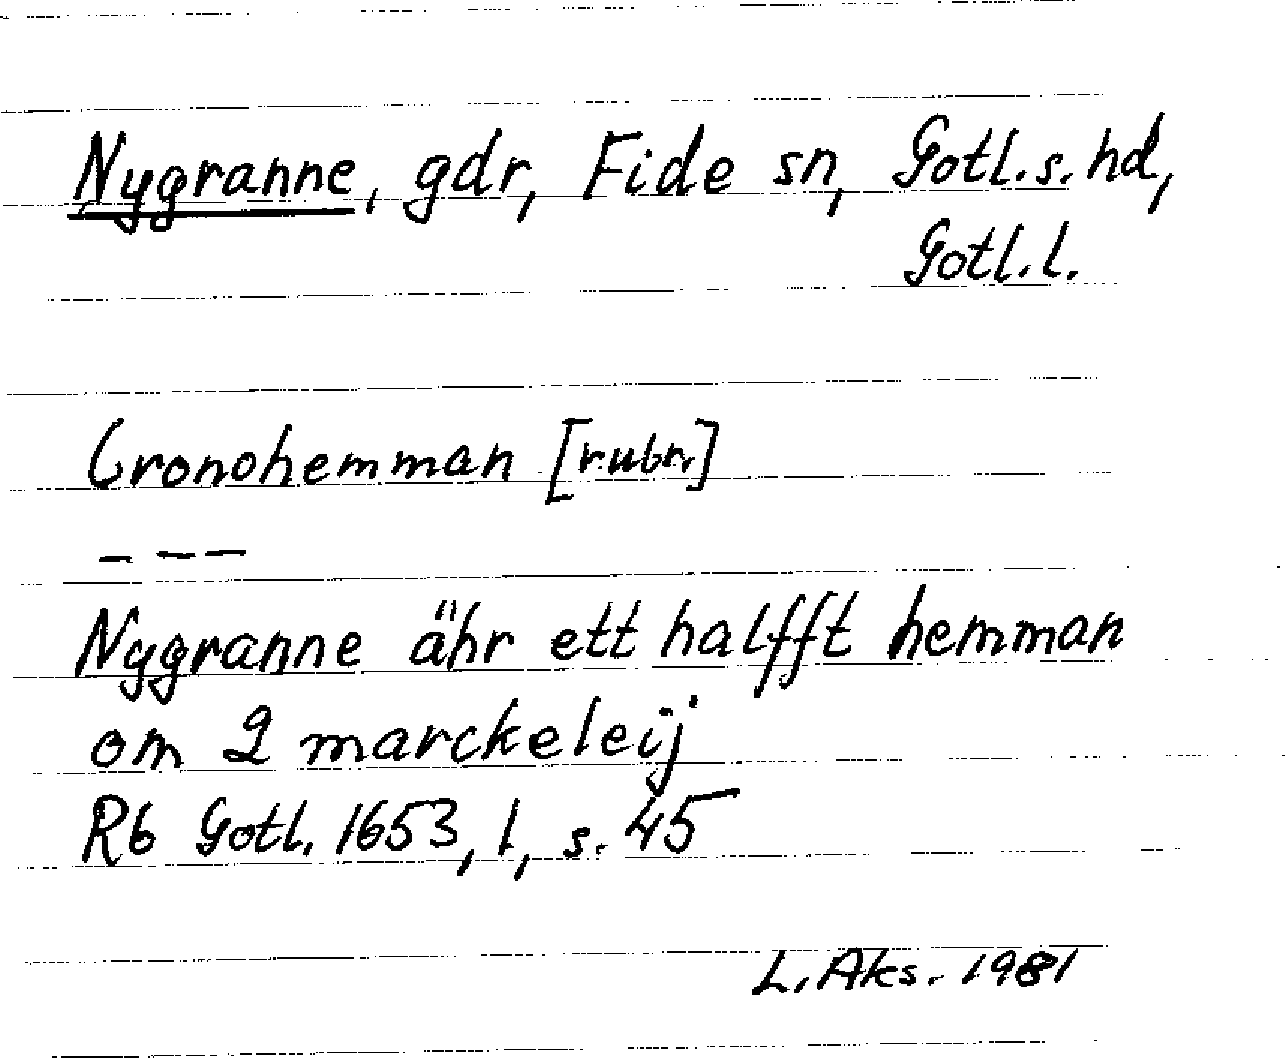 Nygranne, gdr, Fide sn, Gotl. s. hd,
Gotl. l.
Cronohemman [rubr.]
– – –
Nygranne ähr ett halfft hemman
om 2 marckeleij
Rb Gotl. 1653, 1, s. 45
L. Aks. 1981